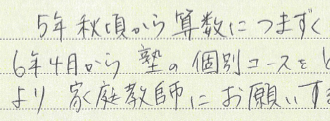 5年秋頃から算数につまずく
6年4月から塾の個別コースをと
より家庭教師にお願いする